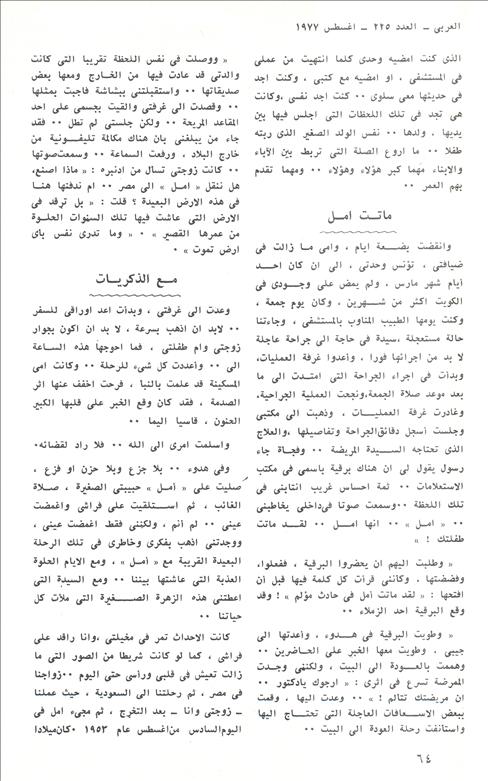 العربى ـ العدد ٢٢٥ ـ اغسطس ١٩٧٧
الذى كنت امضيه وحدى كلما انتهيت من عملى
فى المستشفى ، او امضيه مع كتبى ، وكنت اجد
فى حديثها معى سلوى ٠٠ كنت اجد نفسى ،وكانت
هى تجد فى تلك اللحظات التى اجلس فيها بين
يديها ، ولدها ٠٠ نفس الولد الصغير الذى ربته
طفلا ٠٠ ما اروع الصلة التى تربط بين الآباء
والابناء مهما كبر هؤلاء وهؤلاء ٠٠ ومهما تقدم
بهم العمر ٠٠
ماتت امل
وانقضت بضعة ايام ، وامى ما زالت فى
ضيافتى ، تؤنس وحدتى ، الى ان كان احد
أيام شهر مارس ، ولم يمض على وجودى فى
الكويت اكثر من شهرين ، وكان يوم جمعة ،
وكنت يومها الطبيب المناوب بالمستشفى ، وجاءتنا
حالة مستعجلة ،سيدة فى حاجة الى جراحة عاجلة
لا بد من اجرائها فورا ، وأعدوا غرفة العمليات،
وبدأت فى اجراء الجراحة التى امتدت الى ما
بعد موعد صلاة الجمعة،ونجحت العملية الجراحية،
وغادرت غرفة العمليات ، وذهبت الى مكتبى
وجلست أسجل دقائق الجراحة وتفاصيلها ،والعلاج
الذى تحتاجه السيدة المريضة ٠٠ وفجأة جاء
رسول يقول لى ان هناك برقية باسمى فى مكتب
الاستعلامات ٠٠ ثمة احساس غريب انتابنى فى
تلك اللحظة ٠٠وسمعت صوتا فىداخلى يخاطبنى
٠٠ « امل » ٠٠ انها امل ٠٠ لقد ماتت
طفلتك ! »
« وطلبت اليهم ان يحضروا البرقية ، ففعلوا،
وفضضتها ، وكأننى قرأت كل كلمة فيها قبل أن
افتحها : « لقد ماتت أمل فى حادث مؤلم » ! وقد
وقع البرقية احد الزملاء ٠٠
« وطويت البرقية فى هدوء ، وأعدتها الى
جيبى ، وطويت معها الخبر على الحاضرين ٠٠
وهممت بالعودة الى البيت ، ولكننى وجدت
الممرضة تسرع فى اثرى : « ارجوك يادكتور ٠٠
ان مريضتك تتألم ! » ٠٠ وعدت اليها ، وقمت
ببعض الاسعافات العاجلة التى تحتاج اليها
واستأنفت رحلة العودة الى البيت ٠٠
« ووصلت فى نفس اللحظة تقريبا التى كانت
والدتى قد عادت فيها من الخارج ومعها بعض
صديقاتها ٠٠ واستقبلتنى ببشاشة فأجبت بمثلها
٠٠ وقصدت الى غرفتى والقيت بجسمى على احد
المقاعد المريحة ٠٠ ولكن جلستى لم تطل ٠٠ فقد
جاء من يبلغنى بان هناك مكالمة تليفونية من
خارج البلاد ، ورفعت السماعة ٠٠ وسمعت صوتها
٠٠ كانت زوجتى تسأل من ادنبره : « ماذا اصنع،
هل ننقل « امل » الى مصر ٠٠ ام ندفنها هنا
فى هذه الارض البعيدة ؟ قلت : « بل ترقد فى
الارض التى عاشت فيها تلك السنوات الحلوة
من عمرها القصير » ٠ « وما تدرى نفس باى
ارض تموت » ٠
مع الذكريات
وعدت الى غرفتى ، وبدأت اعد اوراقى للسفر
٠٠ لابد ان اذهب بسرعة ، لا بد ان اكون بجوار
زوجتى وام طفلتى ، فما احوجها هذه الساعة
الى ٠٠ وأعددت كل شىء للرحلة ٠٠ وكانت امى
المسكينة قد علمت بالنبا ، فرحت اخفف عنها اثر
الصدمة ، فقد كان وقع الخبر على قلبها الكبير
الحنون ، قاسيا اليما ٠٠
واسلمت امرى الى الله ٠٠ فلا راد لقضائه٠
وفى هدوء ٠٠ بلا جزع وبلا حزن او فزع ،
صليت على « أمل » حبيبتى الصغيرة ، صلاة
الغائب ، ثم استلقيت على فراشى واغمضت
عينى ٠٠ لم أنم ، ولكننى فقط اغمضت عينى ،
ووجدتنى اذهب بفكرى وخاطرى فى تلك الرحلة
البعيدة القريبة مع « أمل » ، ومع الايام الحلوة
العذبة التى عاشتها بيننا ٠٠ ومع السيدة التى
اعطتنى هذه الزهرة الصغيرة التى ملأت كل
حياتنا ٠٠
كانت الاحداث تمر فى مخيلتى ،وانا راقد على
فراشى ، كما لو كانت شريطا من الصور التى ما
زالت تعيش فى قلبى ورأسى حتى اليوم ٠٠زواجنا
فى مصر ، ثم رحلتنا الى السعودية ، حيث عملنا
ـ زوجتى وانا ـ بعد التخرج ، ثم مجىء امل فى
اليوم السادس من اغسطس عام ١٩٥٣ ٠كان ميلادا
٦٤